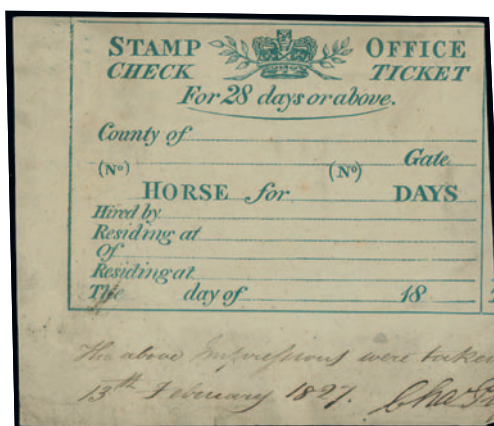 STAMP OFFICE
CHECK TICKET
For 28 days or above.
County of
Gate
(No) (No)
HORSE for DAYS
Hired by
Residing at
Of
Residing at
The day of 18
The above Impressions were taken
13th February 1827. Chas